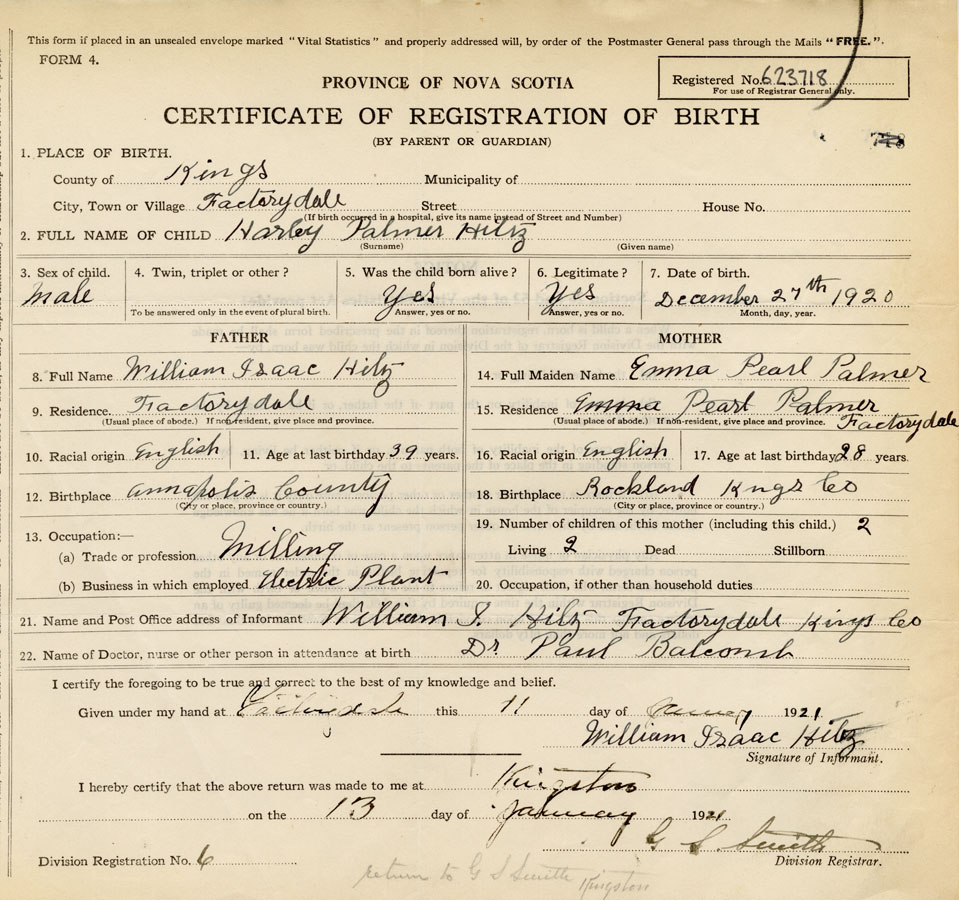 This form if placed in an unsealed envelope marked "Vital Statistics" and properly addressed will, by order of the Postmaster General pass through the Mails "FREE."
FORM 4.
Registered No. 623718
For use of Registrar General only.
PROVINCE OF NOVA SCOTIA
CERTIFICATE OF REGISTRATION OF BIRTH
(BY PARENT OR GUARDIAN)
718
1. PLACE OF BIRTH.
County of Kings Municipality of
City, Town or Village Factorydale Street House No.
(If birth occurred in a hospital, give its name instead of Street and Number)
2. FULL NAME OF CHILD Harley Palmer Hiltz
(Surname) (Given name)
3. Sex of child. 4. Twin, triplet or other? 5. Was the child born alive? 6. Legitimate? 7. Date of birth.
Male Yes Yes December 27th 1920
To be answered only in the event of plural birth. Answer, yes or no. Answer, yes or no. Month, day, year.
FATHER MOTHER
8. Full Name William Isaac Hiltz 14. Full Maiden Name Emma Pearl Palmer
9. Residence. Factorydale 15. Residence Emma Pearl Palmer
(Usual place of abode.) If non-resident, give place and province. (Usual place of abode.) If non-resident, give place and province. Factorydale
10. Racial origin English 11. Age at last birthday 39 years. 16. Racial origin English 17. Age at last birthday 28 years.
12. Birthplace Annapolis County 18. Birthplace Rockland Kngs Co
(City or place, province or country.) (City or place, province or country.)
13. Occupation:— 19. Number of children of this mother (including this child.) 2
(a) Trade or profession Milling Living 2 Dead Stillborn
(b) Business in which employed Electric Plant 20. Occupation, if other than household duties
21. Name and Post Office address of Informant William I. Hiltz Factorydale Kings Co
22. Name of Doctor, nurse or other person in attendance at birth Dr Paul Balcomb
I certify the foregoing to be true and correct to the best of my knowledge and belief.
Given under my hand at Factorydale this 11 day of January 1921.
William Isaac Hiltz
Signature of Informant.
I hereby certify that the above return was made to me at Kingston
on the 13 day of January 1921
G S Smith
Division Registration No. 6 Division Registrar.
return to G S Smith Kingston